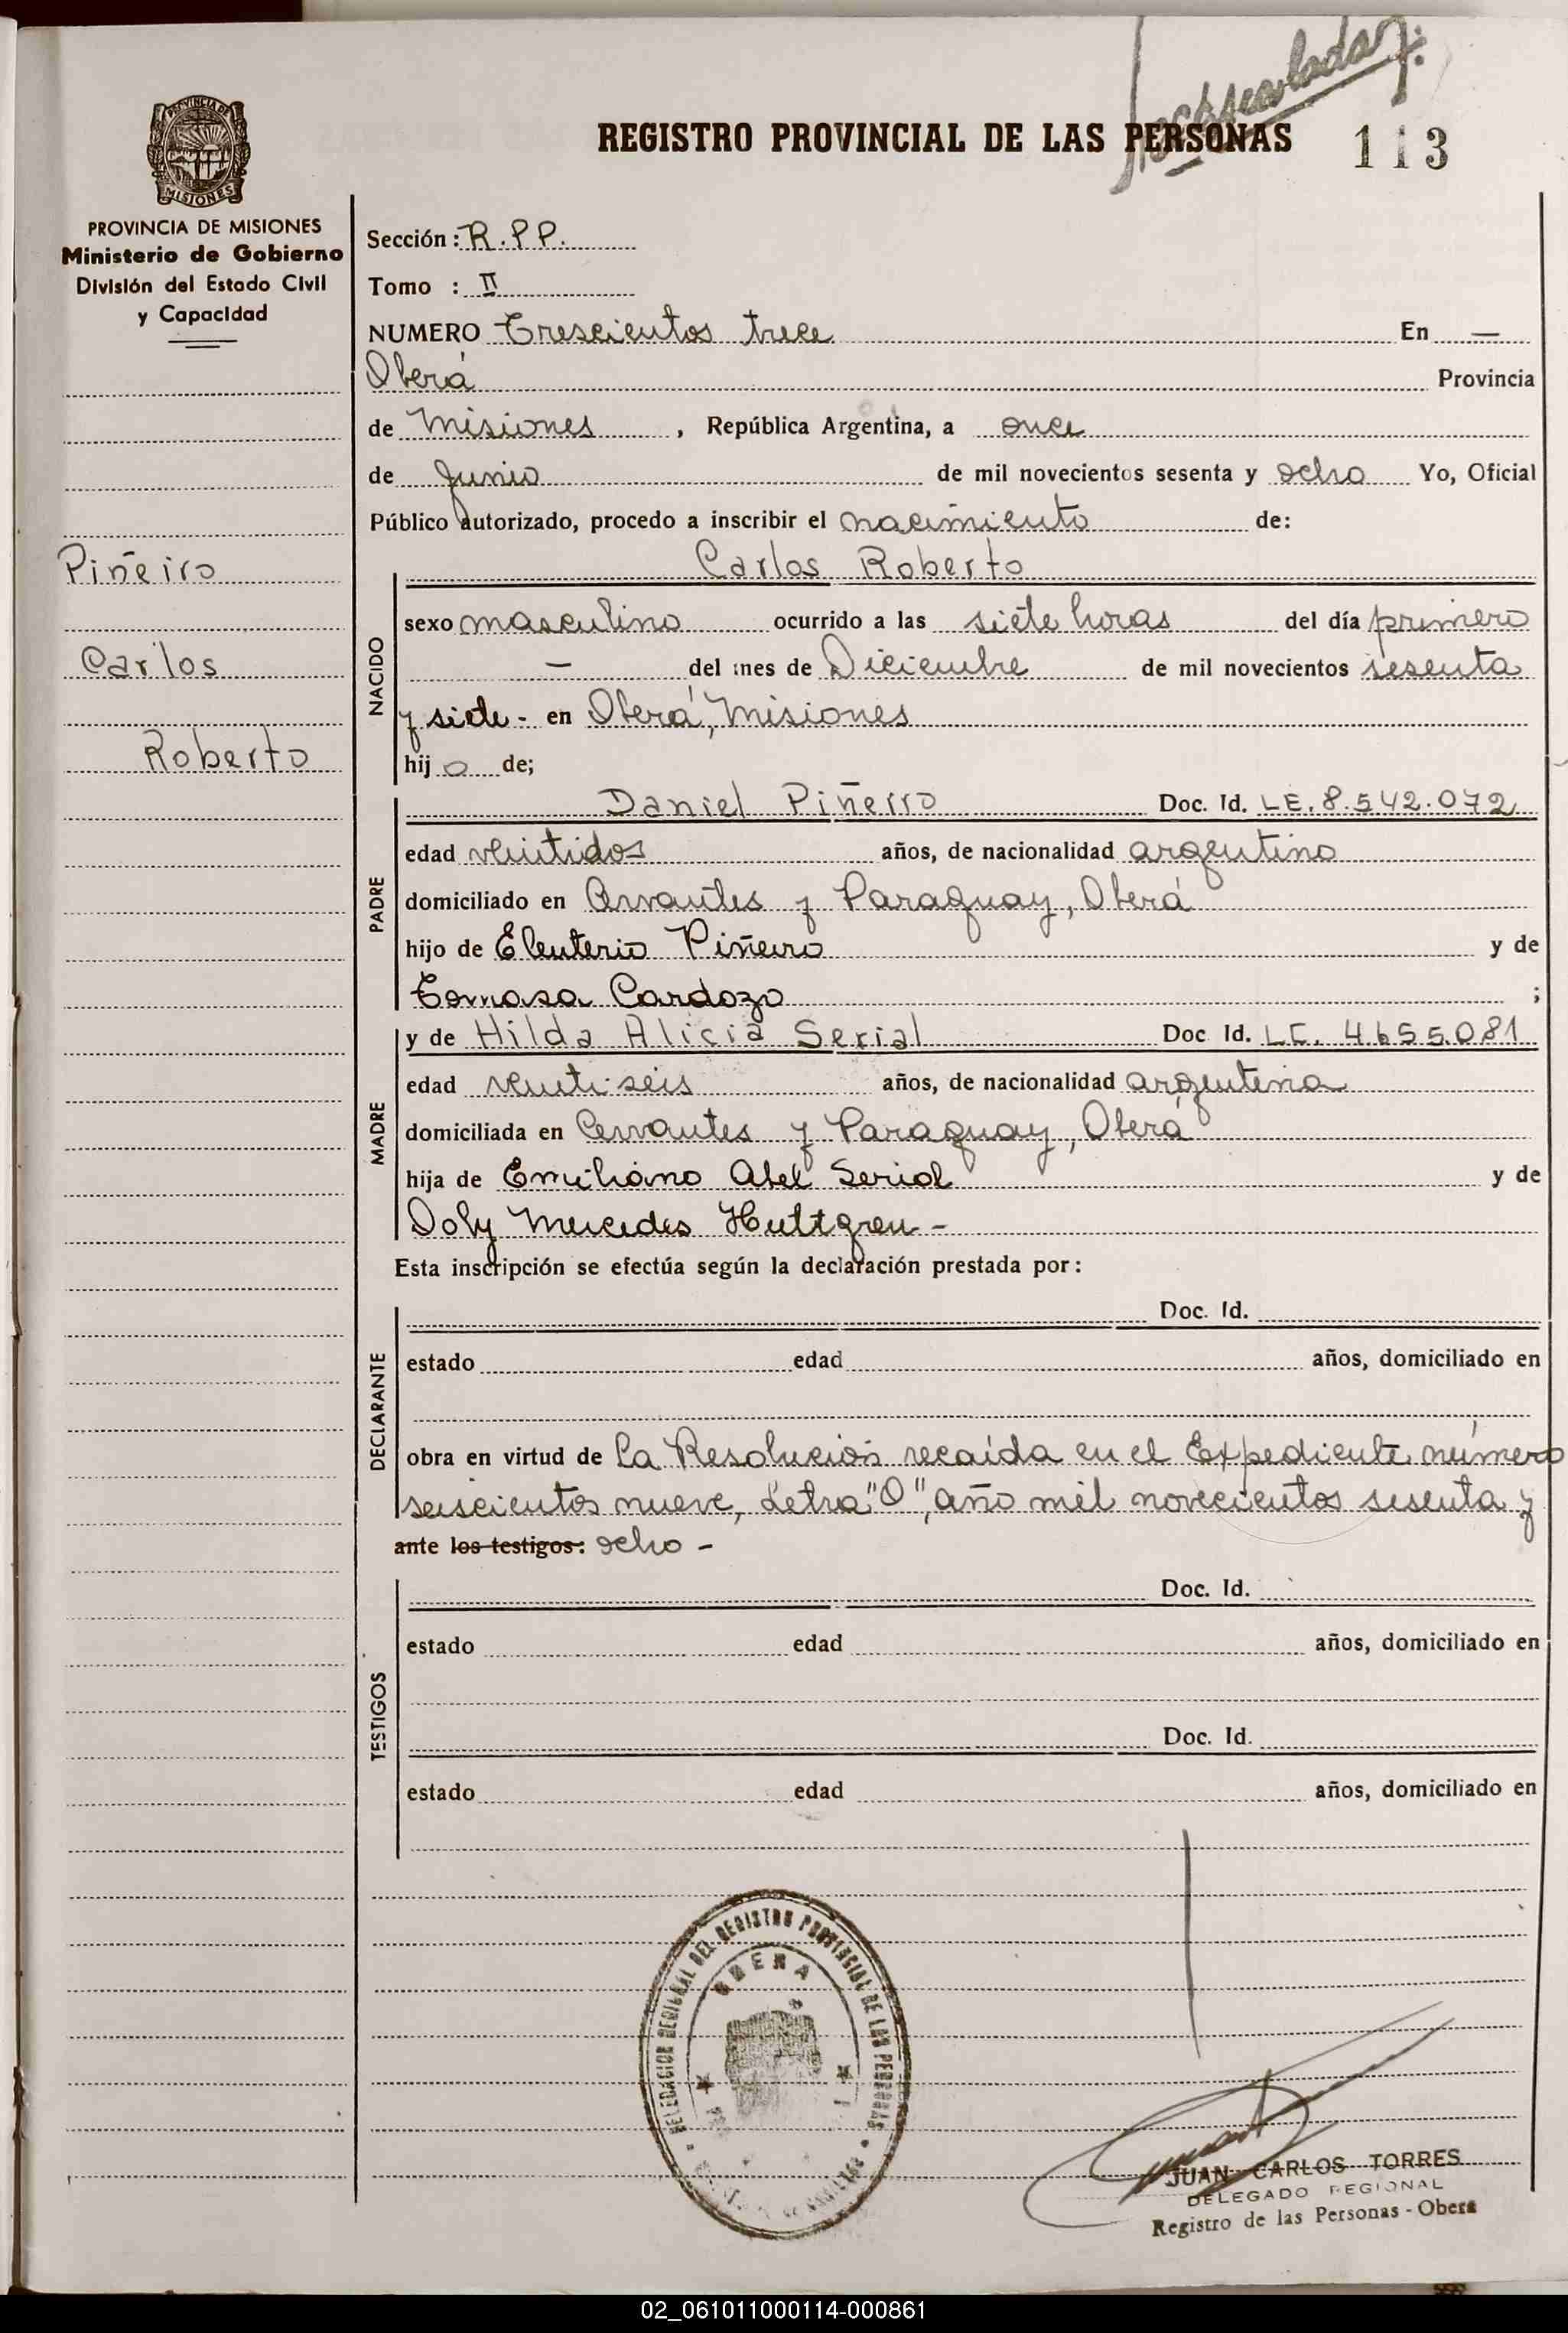 REGISTRO PROVINCIAL DE LAS PERSONAS
113
PROVINCIA DE MISIONES
MISIONES
PROVINCIA DE MISIONES
Ministerio de Gobierno
División del Estado Civil
y Capacidad
Piñeiro
Carlos
Roberto
Sección: R.P.P.
Tomo : II
NUMERO Trescientos trece En —
Oberá Provincia
de Misiones, República Argentina, a once
de Junio de mil novecientos sesenta y ocho Yo, Oficial
Público autorizado, procedo a inscribir el nacimiento de:
NACIDO
Carlos Roberto
sexo masculino ocurrido a las siete horas del día primero
— del mes de Diciembre de mil novecientos sesenta
y siete - en Oberá, Misiones
hijo de;
PADRE
Daniel Piñeiro Doc. Id. LE. 8.542.072
edad veintidos años, de nacionalidad argentino
domiciliado en Cervantes y Paraguay, Oberá
hijo de Eleuterio Piñeiro y de
Tomasa Cardozo ;
MADRE
y de Hilda Alicia Serial Doc Id. LC. 4.655.081
edad veinti seis años, de nacionalidad argentina
domiciliada en Cervantes y Paraguay, Oberá
hija de Emiliano Abel Serial y de
Doly Mercedes Huttgren -
Esta inscripción se efectúa según la declaración prestada por:
DECLARANTE
Doc. Id.
estado edad años, domiciliado en
obra en virtud de la Resolución recaída en el Expediente número
seiscientos nueve, Letra "O", año mil novecientos sesenta y
ante los testigos: ocho -
TESTIGOS
Doc. Id.
estado edad años, domiciliado en
Doc. Id.
estado edad años, domiciliado en
DELEGACION REGIONAL DEL REGISTRO PROVINCIAL DE LAS PERSONAS
OBERA
JUAN CARLOS TORRES
DELEGADO REGIONAL
Registro de las Personas - Obera
02_061011000114-000861